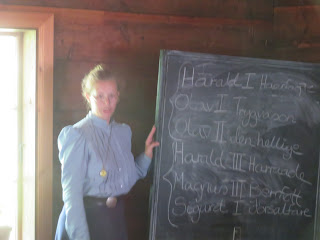 Harald I Hårfagre
Olav I Tryggvason
Olav II den hellige
Harald III Hardråde
Magnus III Berrføtt
Sigurd I Jorsalfare